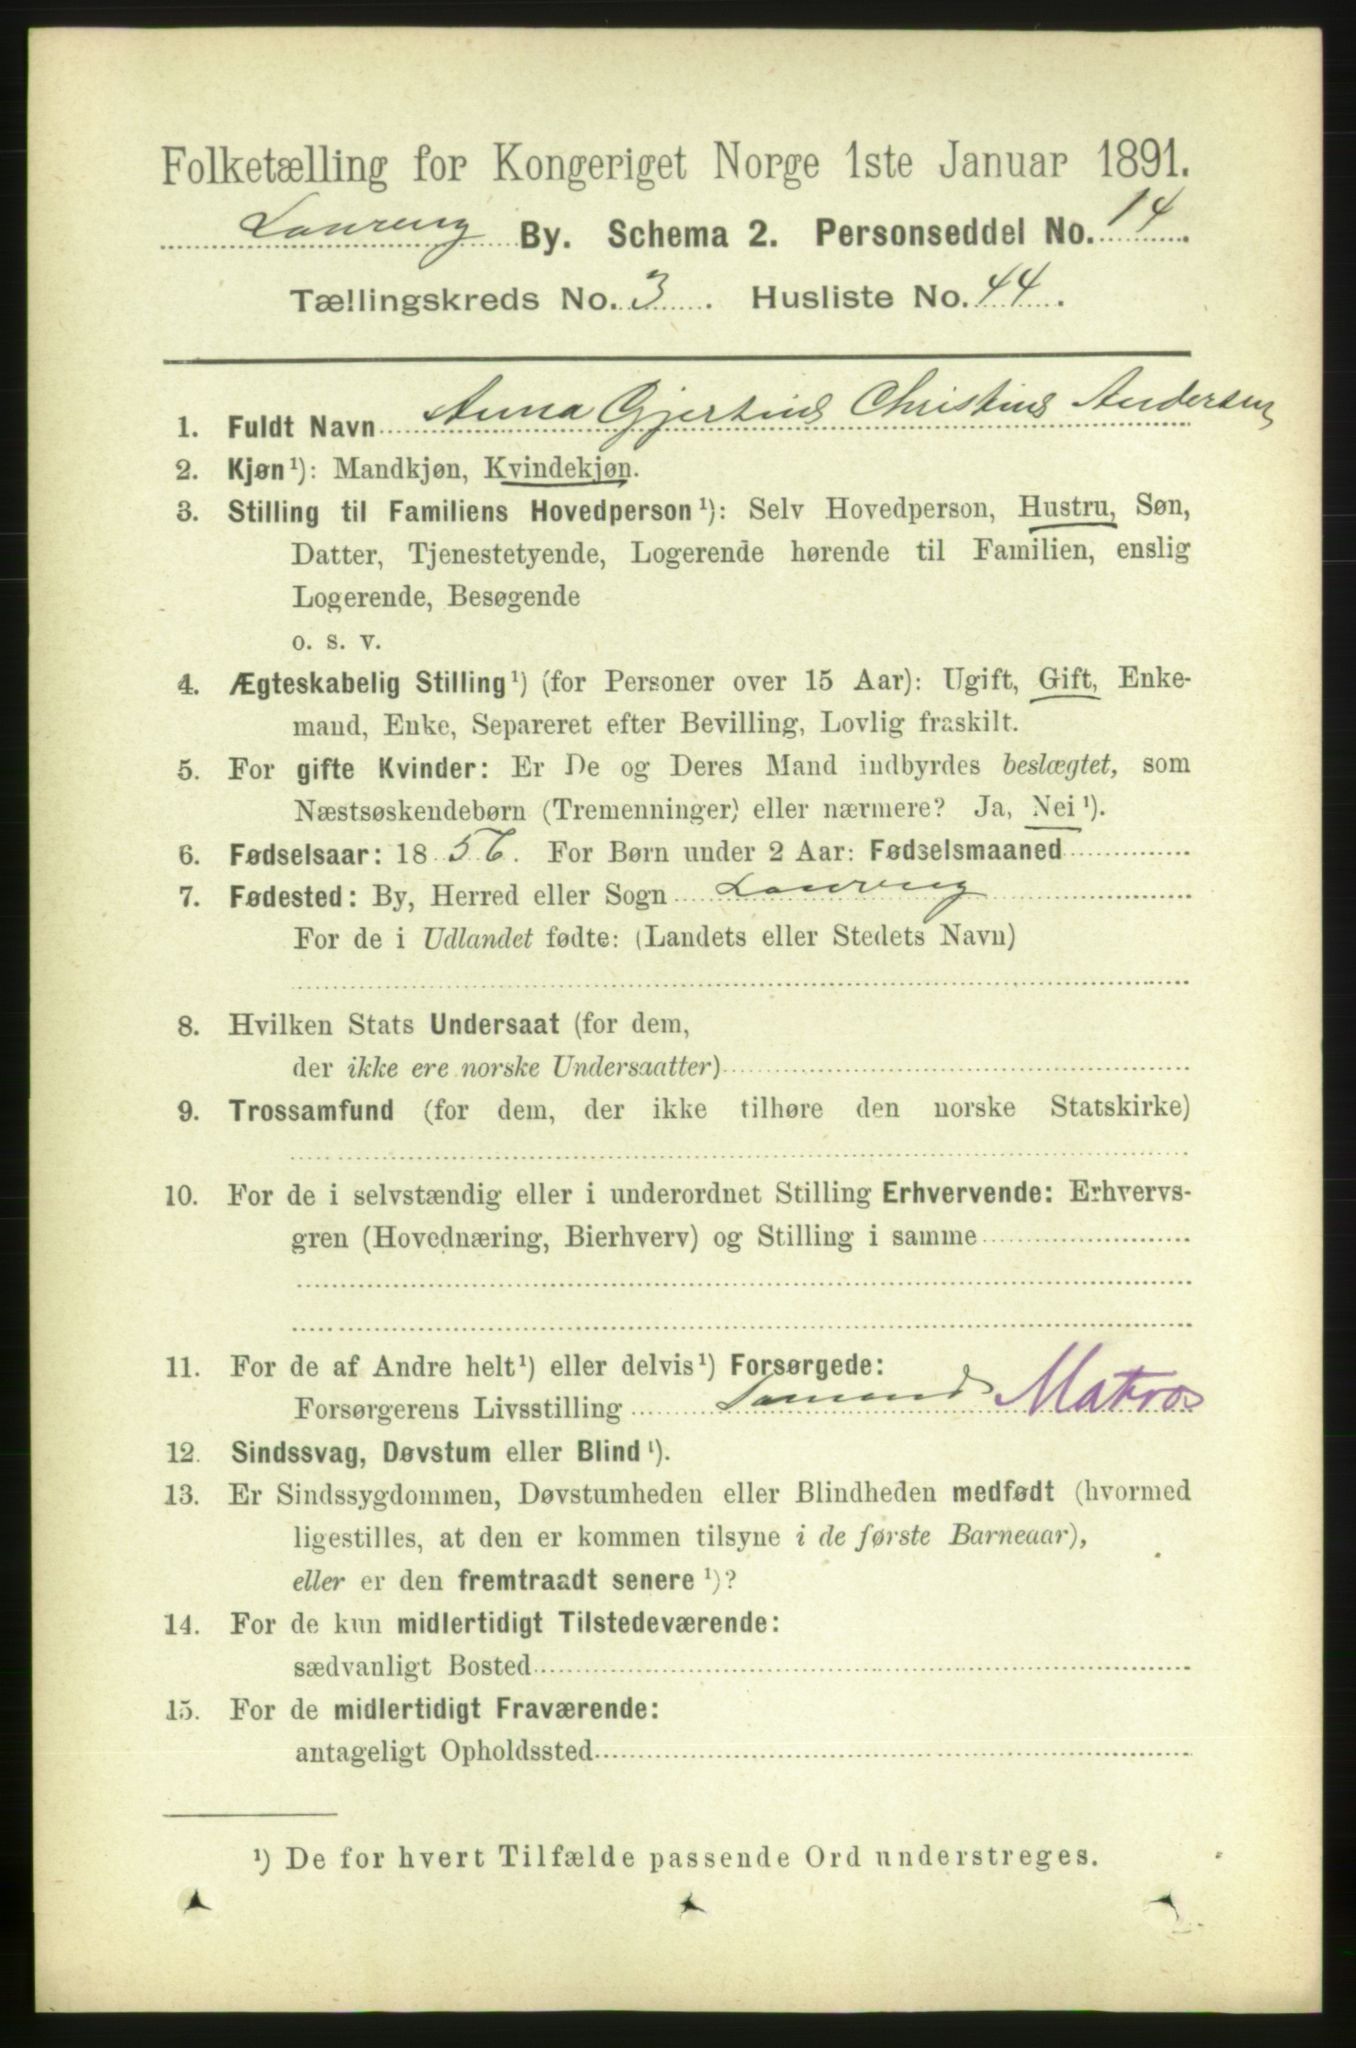 Folketælling for Kongeriget Norge 1ste Januar 1891.
Laurvig By. Schema 2. Personseddel No. 14
Tællingskreds No. 3. Husliste No. 44.
1. Fuldt Navn Anna Gjertine Christine Andersen
2. Kjøn¹): Mandkjøn, Kvindekjøn.
3. Stilling til Familiens Hovedperson¹): Selv Hovedperson, Hustru, Søn,
Datter, Tjenestetyende, Logerende hørende til Familien, enslig
Logerende, Besøgende
o. s. v.
4. Ægteskabelig Stilling¹) (for Personer over 15 Aar): Ugift, Gift, Enke-
mand, Enke, Separeret efter Bevilling, Lovlig fraskilt.
5. For gifte Kvinder: Er De og Deres Mand indbyrdes beslægtet, som
Næstsøskendebørn (Tremenninger) eller nærmere? Ja, Nei¹).
6. Fødselsaar: 1856. For Børn under 2 Aar: Fødselsmaaned
7. Fødested: By, Herred eller Sogn Laurvig
For de i Udlandet fødte: (Landets eller Stedets Navn)
8. Hvilken Stats Undersaat (for dem,
der ikke ere norske Undersaatter)
9. Trossamfund (for dem, der ikke tilhøre den norske Statskirke)
10. For de i selvstændig eller i underordnet Stilling Erhvervende: Erhvervs-
gren (Hovednæring, Bierhverv) og Stilling i samme
11. For de af Andre helt¹) eller delvis¹) Forsørgede:
Forsørgerens Livsstilling Sømand Matros
12. Sindssvag, Døvstum eller Blind¹).
13. Er Sindssygdommen, Døvstumheden eller Blindheden medfødt (hvormed
ligestilles, at den er kommen tilsyne i de første Barneaar),
eller er den fremtraadt senere¹)?
14. For de kun midlertidigt Tilstedeværende:
sædvanligt Bosted
15. For de midlertidigt Fraværende:
antageligt Opholdssted
¹) De for hvert Tilfælde passende Ord understreges.